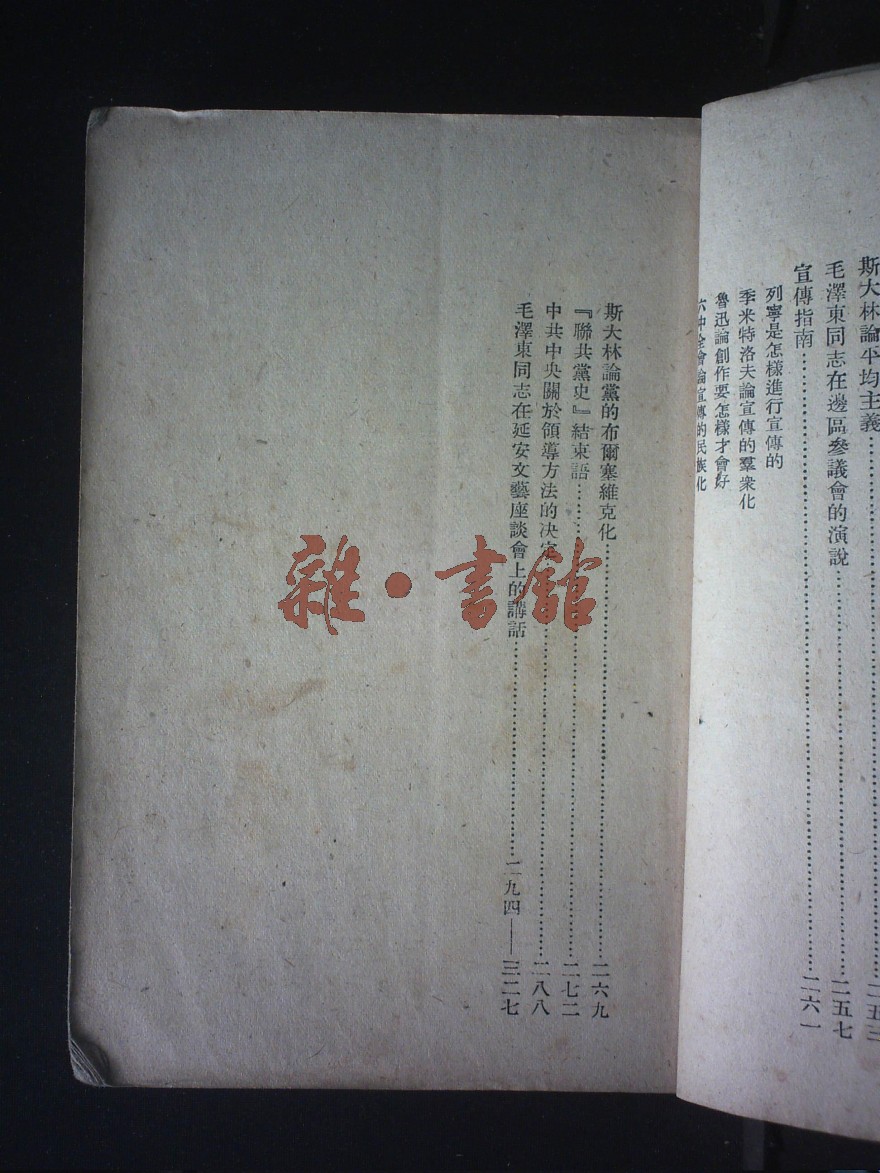 斯大林論平均主義……二五三
毛澤東同志在邊區參議會的演說……二五七
宣傳指南……二六一
列寧是怎樣進行宣傳的
季米特洛夫論宣傳的羣衆化
魯迅論創作要怎樣才會好
六中全會論宣傳的民族化
斯大林論黨的布爾塞維克化……二六九
『聯共黨史』結束語……二七二
中共中央關於領導方法的决定……二八八
毛澤東同志在延安文藝座談會上的講話……二九四——三二七
雜·書舘